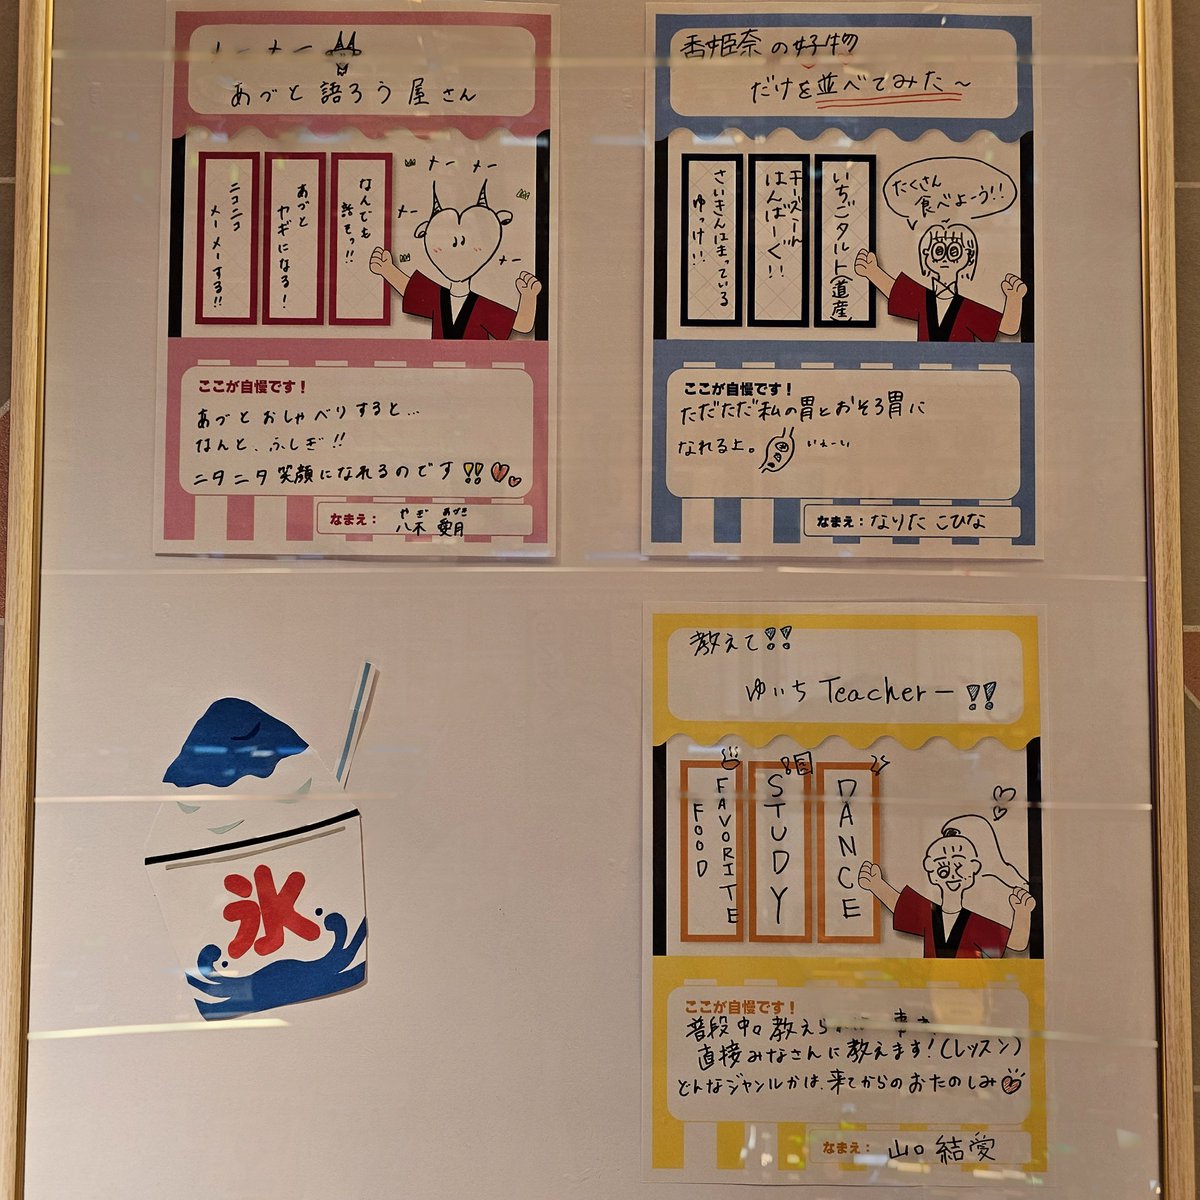 メーメー
あづと語ろう屋さん
メー メー
メー
メー
なんでも
話そっ!!
あづと
ヤギになる!
ニコニコ
メーメーする!!
ここが自慢です!
あづとおしゃべりすると…
なんと、ふしぎ!!
ニタニタ笑顔になれるのです!!
なまえ:
やぎ あづき
八木 愛月
香姫奈の好物
だけを並べてみた~
たくさん
食べよーう!!
いちごタルト(道産)
チーズいん
はんばーぐ!!
さいきんはまっている
ゆっけ!!
ここが自慢です!
ただただ私の胃とおそろ胃に
なれる上。
いぇーい
なまえ:なりた こひな
氷
教えて!!
ゆいちTeacherー!!
DANCE
STUDY
FAVORITE
FOOD
ここが自慢です!
普段中。教えら
直接みなさんに教えます!(レッスン)
どんなジャンルかは、来てからのおたのしみ
なまえ: 山口 結愛